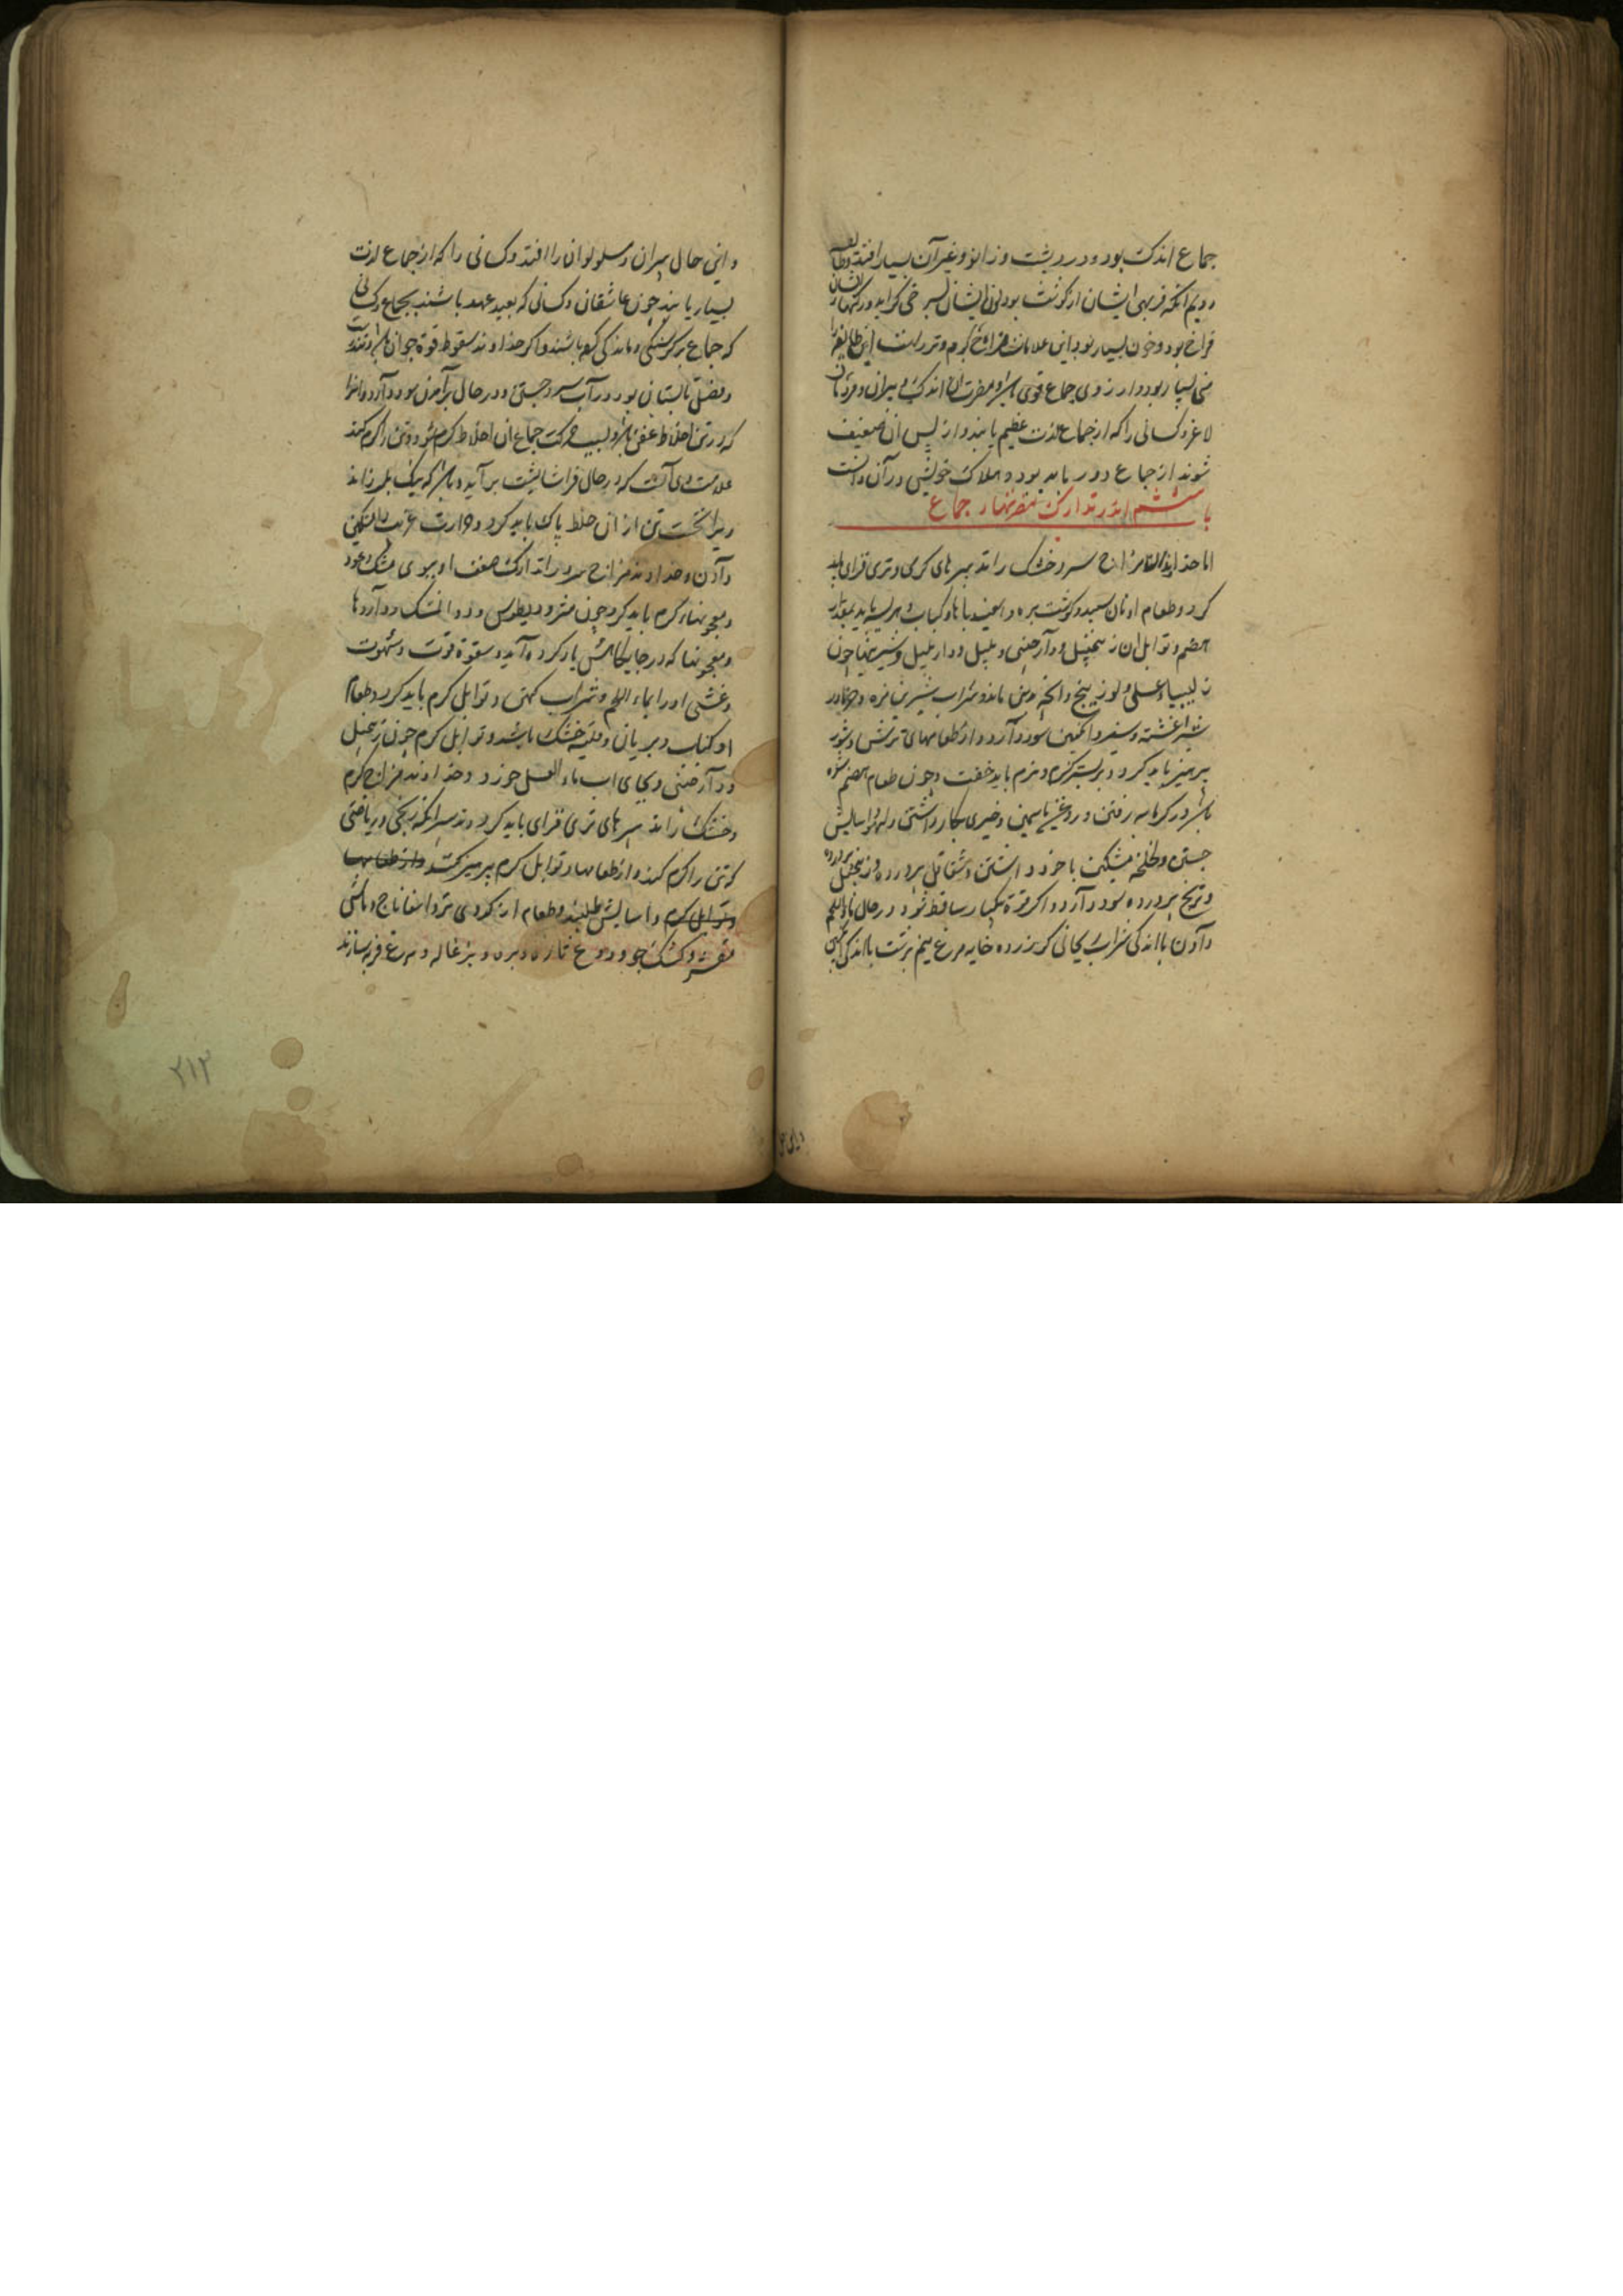 جماع اندک بود و درد پشت و زانو و غیر آن بسیار افتد و طایفه
دویم انکه فربهی ایشان از کوشت بود لون ایشان بسرخی کراید و رکهاء ایشان
فراخ بود و خون بسیار بود این علامات مزاج کرم و تر است این طایفه را
منی بسیار بود و ارزوی جماع قوی باشد و مضرت ان اندک و پیران و مردمان
لاغر و کسانی را که از جماع لذت عظیم یابند و از پس ان ضعیف
شوند از جماع دور باید بود و هلاک خویش در آن دانست
باب ششم اندر تدارک مضرتهاء جماع
اما خداوند مزاج سرد و خشک را تدبیرهای کرمی و تری فزای باید
کرد و طعام او نان سپید و کوشت بره و اسفیدباها و کباب و هریسه باید بمقدار
هضم و توابل ان زنجبیل و دارچینی و پلپل و دارپلپل و شیرینیها چون
زلیبیا و عسلی و لوزینج و انچه بدین ماند و شراب شیرین تازه و خرما در
شیر اغشته و سفید و انکبین سود دارد و از طعامهای ترش و شور
پرهیز باید کرد و بر بستر کرم و نرم باید خفت و چون طعام هضم شده
باشد در کرمابه رفتن و روغن یاسمین و خیری بکار داشتن و لهو و اسایش
جستن و لخلخه مشکین با خود داشتن و شقاقل پرورده و زنجبیل پرورده
و ترنج پرورده سود دارد و اگر قوة یکبار ساقط شود در حال ماء اللحم
دادن با اندکی شراب ریحانی کر زرده خایه مرغ نیم برشت با اندکی
و این حال پیران و مسلولان را افتد و کسانی را که از جماع لذت
بسیار یابند چون عاشقان و کسانی که بعید عهد باشند بجماع و کسانی
که جماع بر کرسنکی و ماندکی کرده باشند و اکر خداوند سقوط قوة جوان باشد و تندرست
و فصل تابستان بود در آب سرد جستن و در حال برآمدن سود دارد و انرا
که در تن اخلاط عفن باشد و بسبب حرکت جماع ان اخلاط کرم شود و تن را کرم کند
علامت وی آنست که در حال فراشا پشت بر آید و باشد که نیک بلرزاند
ویرا نخست تن از ان خلط پاک باید کرد و حرارت غریب را تسکین
دادن و خداوند مزاج سرد را تدارک ضعف او ببوی مشک و عود
و معجونهاء کرم باید کرد چون مثرودیطوس و دواء المسک و داروها
و معجونها که در جایکاهش یاد کرده آید و سقوة قوت و شهوت
و غشی او را بماء اللحم و شراب کهن و توابل کرم باید کرد و طعام
او کباب و بریان و قلیه خشک باشد و توابل کرم چون زنجبیل
و دارچینی و بجای اب ماء العسل خورد و خداوند مزاج کرم
و خشک را تدبیرهای تری فزای باید کرد و تدبیر انکه رنجی و ریاضتی
که تن را کرم کند و از طعامها و توابل کرم پرهیز کند و از طعامها
و توابل کرم و اسایش طلبند و طعام از کدوی تر و اسفاناج و ماش
مقشر و کشک جو و دوغ تازه و بره و بزغاله و مرغ فربه سازند
۲۱۲